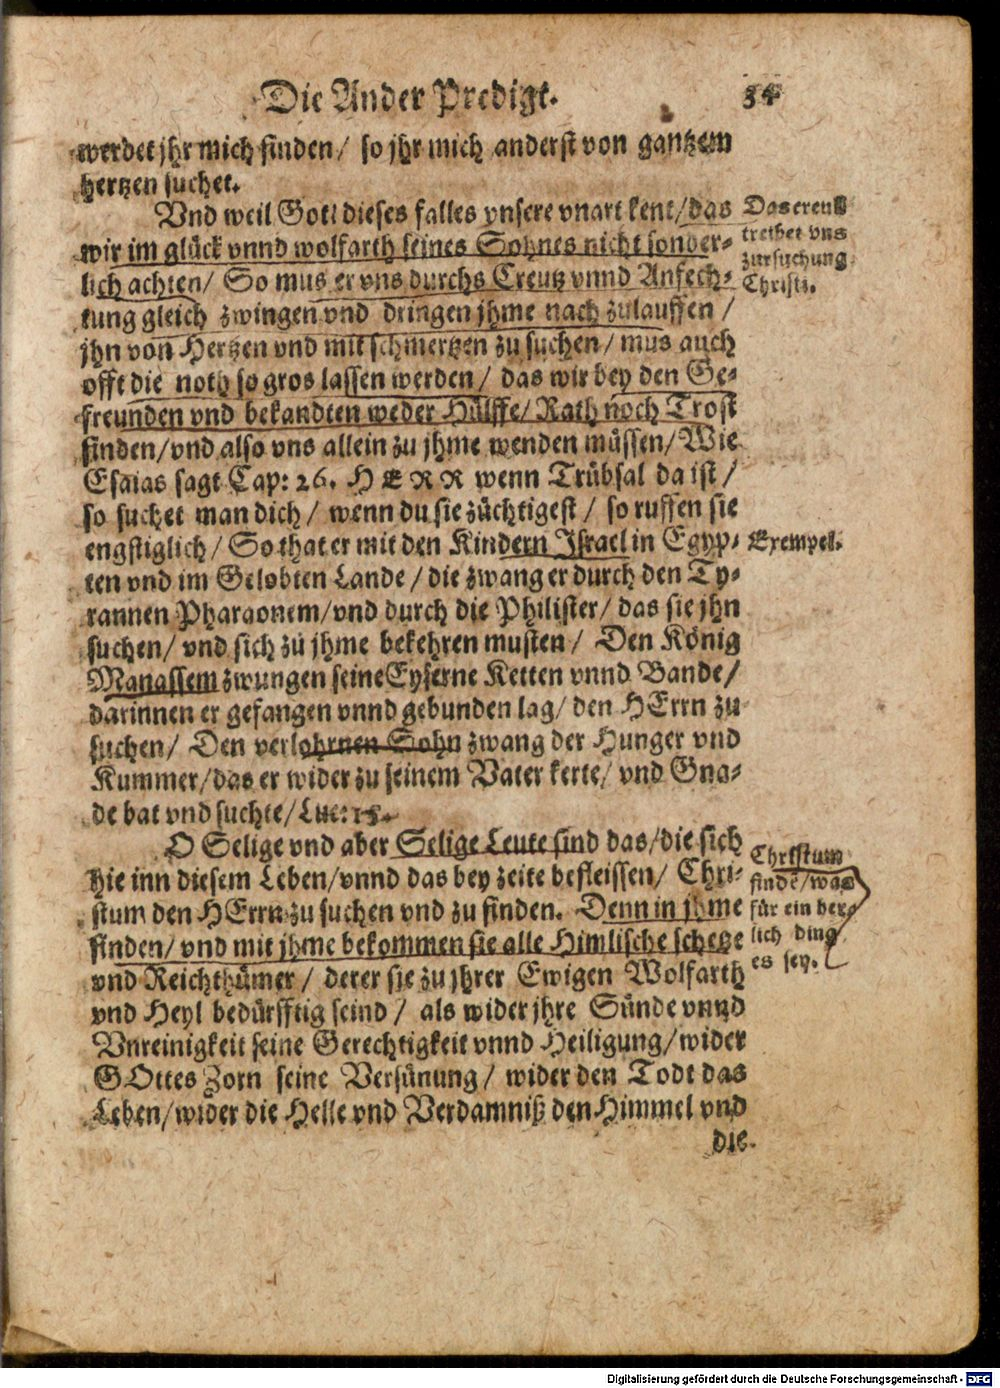 Die Ander Predigt. 34
werdet jhr mich finden/ so jhr mich anderst von gantzem
hertzen suchet.
Vnd weil Gott dieses falles vnsere vnart kent/das
wir im glück vnnd wolfarth seines Sohnes nicht sonder-
lich achten/ So mus er vns durchs Creutz vnnd Anfech-
tung gleich zwingen vnd dringen jhme nach zulauffen /
jhn von Hertzen vnd mit schmertzen zu suchen/ mus auch
offt die noth so gros lassen werden/ das wir bey den Ge-
freunden vnd bekandten weder Hülffe/ Rath noch Trost
finden/vnd also vns allein zu jhme wenden müssen/ Wie
Esaias sagt Cap: 26. HERR wenn Trübsal da ist /
so suchet man dich / wenn du sie züchtigest / so ruffen sie
engstiglich / So that er mit den Kindern Jsrael in Egyp-
ten vnd im Gelobten Lande / die zwang er durch den Ty-
rannen Pharaonem/vnd durch die Philister/ das sie jhn
suchen/ vnd sich zu jhme bekehren musten / Den König
Manassem zwungen seine Eyserne Ketten vnnd Bande/
darinnen er gefangen vnnd gebunden lag/ den HErrn zu
suchen/ Den verlohrnen Sohn zwang der Hunger vnd
Kummer/das er wider zu seinem Vater kerte/ vnd Gna-
de bat vnd suchte/Luc: 15.
O Selige vnd aber Selige Leute sind das/die sich
hie inn diesem Leben/vnnd das bey zeite befleissen/ Chri-
stum den HErrn zu suchen vnd zu finden. Denn in jhme
finden/ vnd mit jhme bekommen sie alle Himlische schetze
vnd Reichthümer / derer sie zu jhrer Ewigen Wolfarth
vnd Heyl bedürfftig seind / als wider jhre Sünde vnnd
Vnreinigkeit seine Gerechtigkeit vnnd Heiligung/wider
GOttes Zorn seine Versünung / wider den Todt das
Leben/wider die Helle vnd Verdamniß den Himmel vnd
die
Das creutz
treibet vns
zur suchung
Christi.
Exempel.
Christum
finde/was
für ein her-
lich ding
es sey.
Digitalisierung gefördert durch die Deutsche Forschungsgemeinschaft - DFG